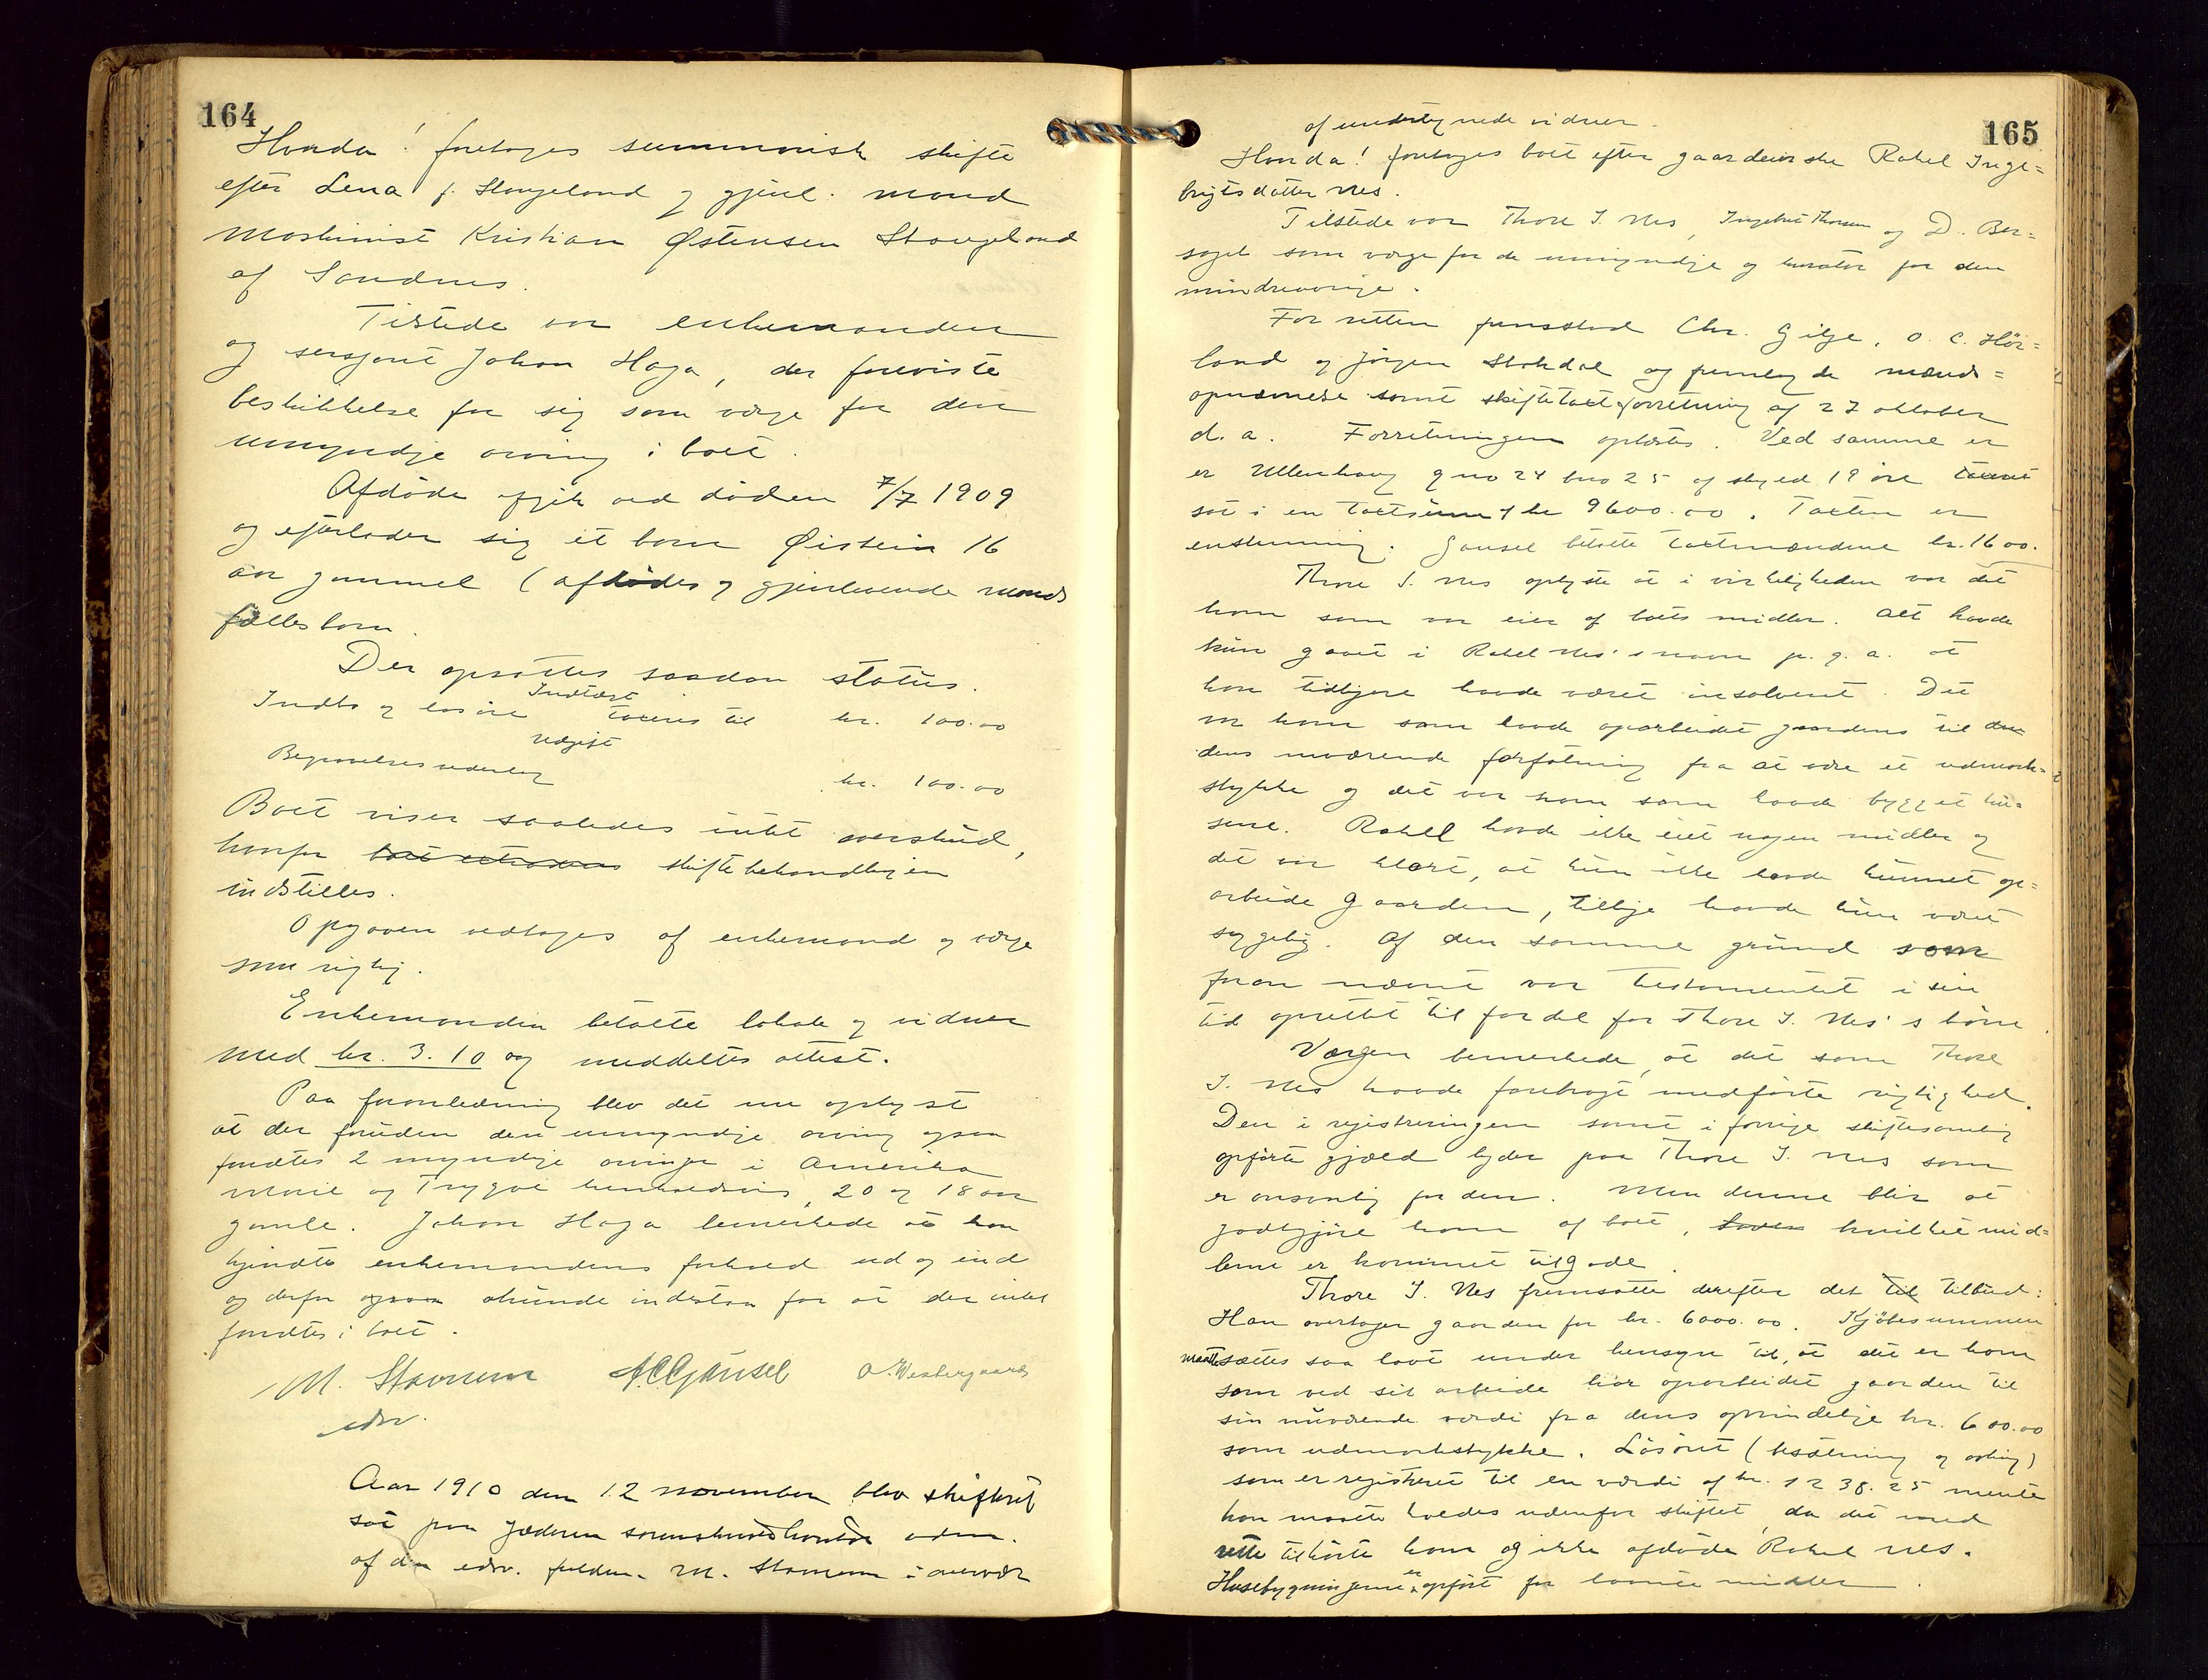 164
Hvorda! foretoges summarisk skifte
efter Lena f. Stangeland og gjenl. mand
Maskinist Kristian Østensen Stangeland
af Sandnes.
Tilstede var enkemanden
og sersjant Johan Haga, der foreviste
beskikkelse for sig som verge for den
umyndige arving i boet.
Afdøde afgik ved døden 7/7 1909
og efterlader sig et barn Øistein 16
aar gammel (afdødes og gjenlevende mands
fællesbarn.
Der opsattes saadan status.
Indtægt
Indbo og løsøre taxeres til kr. 100.00
Udgift
Begravelsesudlæg kr. 100.00
Boet viser saaledes intet overskud,
hvorfor skiftebehandlingen
indstilles.
Opgaven vedtoges af enkemand og verge
som rigtig.
Enkemanden betalte lokale og vidner
med kr. 3.10 og meddeltes attest.
Paa foranledning blev det nu oplyst
at der foruden den umyndige arving ogsaa
fandtes 2 myndige arvinger i Amerika
Marie og Trygve henholdsvis 20 og 18 aar
gamle. Johan Haga bemerkede at han
kjendte enkemandens forhold ud og ind
og derfor ogsaa kunde indestaa for at der intet
fandtes i boet.
M. Stavnem A C Gausel O. Vestergaard
edsv.
Aar 1910 den 12 november blev skifteret
sat paa Jæderen sorenskriverkontor adm.
af den edsv. fuldm. M. Stavnem i overvær
165
af undertegnede vidner.
Hvorda! foretoges boet efter gaardeierske Rakel Inge=
brigtsdatter Nes.
Tilstede var Thore I. Nes, Ingebret Thorsen og D. Ber=
saget som verge for de umyndige og kurator for den
mindreaarige.
For retten fremstod Chr. Gilje, O. C. Hör=
land og Jörgen Stokdal og fremlagde mænds=
opnævnelse samt skiftetaxtforretning af 27 oktober
d. a. Forretningen oplæstes. Ved samme er
er Ullenhaug gno 24 bno 25 af skyld 19 øre
sat i en taxtsum af kr 9600.00. Taxten er
enstemmig. Gausel betalte taxtmændene kr. 16.00.
Thore I. Nes oplyste at i virkeligheden var det
ham som var eier af boets midler. Alt havde
kun gaaet i Rakel Nes's navn p. g. a. at
han tidligere havde været insolvent. Det
var ham som havde oparbeidet gaarden til
dens nuværende forfatning fra at være et udmark=
stykke og det var ham som havde bygget hu=
sene. Rakel havde ikke eiet nogen midler og
det var klart, at hun ikke havde kunnet op=
arbeide gaarden, tillige havde hun været
sygelig. Af den samme grund som
foran nævnt var testamentet i sin
tid oprettet til fordel for Thore I. Nes's børn.
Vergen bemerkede at det som Thore
I. Nes havde forebragt medførte rigtighed.
Den i registreringen samt i forrige skiftesamling
opførte gjæld lyder paa Thore I. Nes som
er ansvarlig for den. Men denne blir at
godtgjøre ham af boet, hvilket mid=
lerne er kommet tilgode.
Thore I. Nes fremsatte derefter det tilbud:
Han overtager gaarden for kr. 6000.00. Kjöbesummen
maatte sættes saa lavt under hensyn til, at det er ham
som ved sit arbeide har oparbeidet gaarden til
sin nuværende værdi fra dens oprindelige kr. 600.00
som udmarkstykke. Løsøret (besætning og avling)
som er registreret til en værdi af kr. 1238.25 mente
han maatte holdes udenfor skiftet, da det med
rette tilhørte ham og ikke afdøde Rakel Nes.
Husebygningerne er opført for laante midler.